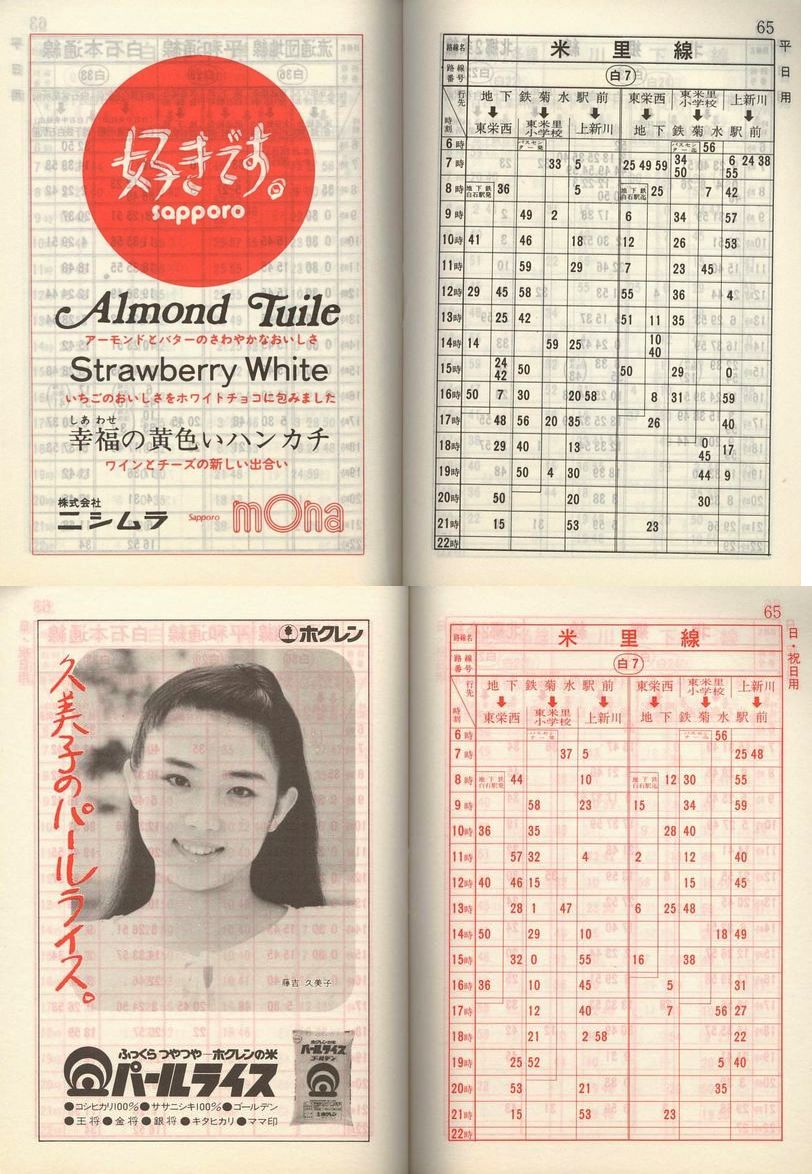 好きです。
sapporo
Almond Tuile
アーモンドとバターのさわやかなおいしさ
Strawberry White
いちごのおいしさをホワイトチョコに包みました
しあわせ
幸福の黄色いハンカチ
ワインとチーズの新しい出合い
株式会社
ニシムラ Sapporo mona
65
平日用
路線名 米里線
路線番号 白7
行先 地下鉄菊水駅前 東栄西 東米里小学校 上新川
時刻 東栄西 東米里小学校 上新川 地下鉄菊水駅前
6時 バスセンター発 バスセンター迄 56
7時 33 5 25 49 59 34 50 6 55 24 38
8時 地下鉄白石駅発 36 5 地下鉄白石駅迄 25 7 42
9時 49 2 6 34 57
10時 41 46 18 12 26 53
11時 59 29 7 23 45
12時 29 45 58 55 36 4
13時 25 42 51 11 35
14時 14 59 25 10 40
15時 24 42 50 50 29 0
16時 50 7 30 20 58 8 31 59
17時 48 56 20 35 26 40
18時 29 40 13 0 45 17
19時 50 4 30 44 9
20時 50 20 30
21時 15 53 23
22時
ホクレン
久美子のパールライス。
藤吉久美子
ふっくらつやつや─ホクレンの米
パールライス
●コシヒカリ100%●ササニシキ100%●ゴールデン
●王将●金将●銀将●キタヒカリ●ママ印
パールライス
ゴールデン
65
日・祝日用
路線名 米里線
路線番号 白7
行先 地下鉄菊水駅前 東栄西 東米里小学校 上新川
時刻 東栄西 東米里小学校 上新川 地下鉄菊水駅前
6時 バスセンター発 バスセンター迄 56
7時 37 5 25 48
8時 地下鉄白石駅発 44 10 地下鉄白石駅迄 12 30 55
9時 58 23 15 34 59
10時 36 35 28 40
11時 57 32 4 2 12 40
12時 40 46 15 15 45
13時 28 1 47 6 25 48
14時 50 29 10 18 49
15時 32 0 55 16 38
16時 36 10 45 5 31
17時 12 40 7 56 27
18時 21 2 58 22
19時 25 52 5 40
20時 53 21 35
21時 15 53 23
22時